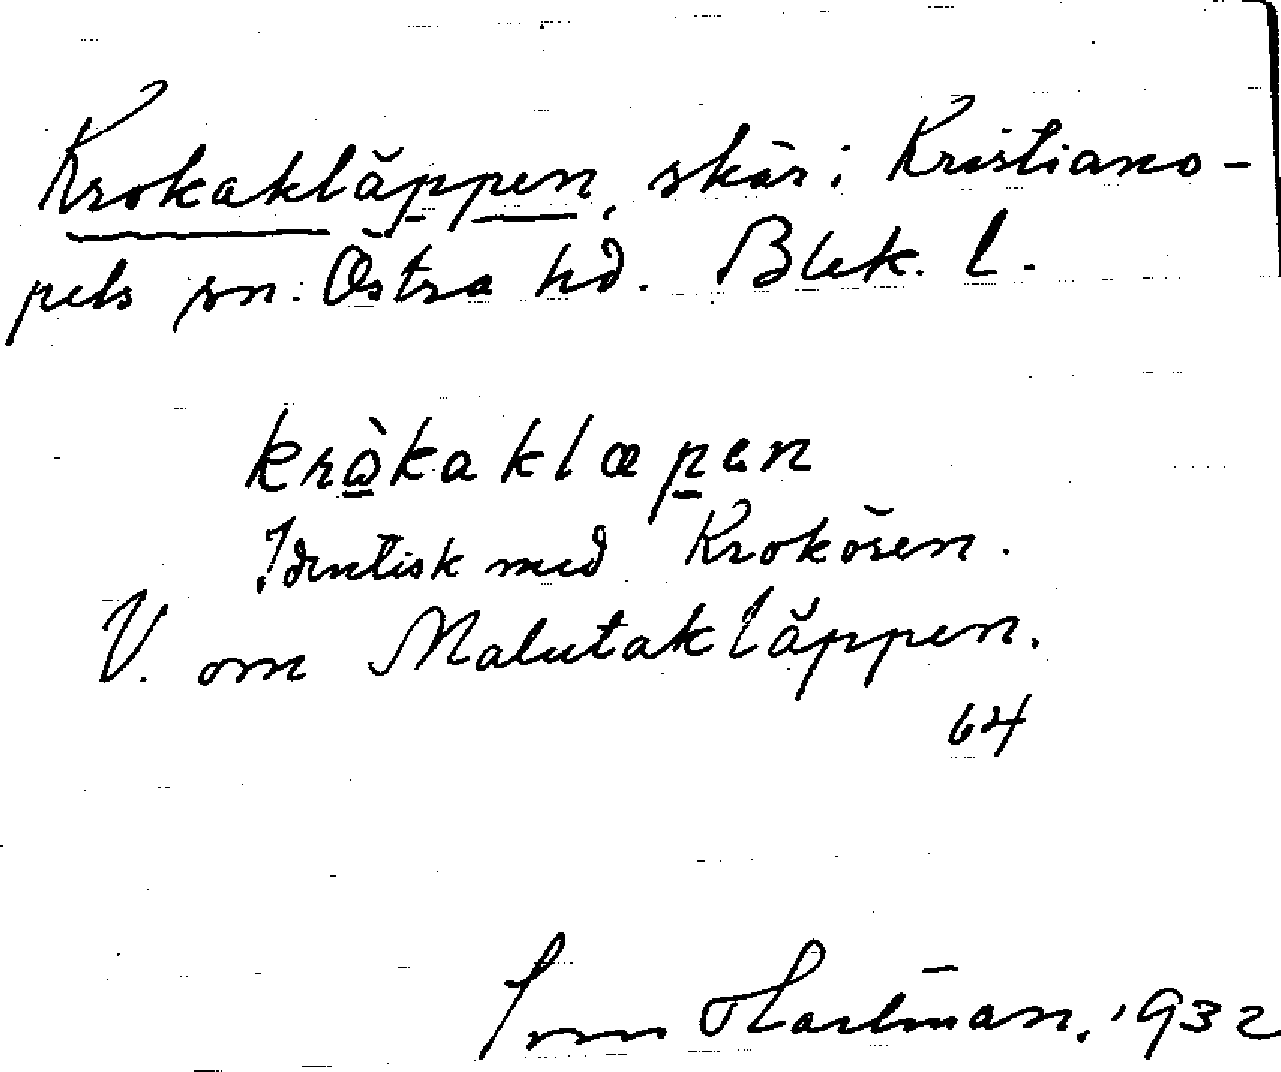 Krokakläppen, skär i Kristiano-
pels sn. Östra hd. Blek. l.
krò̲kaklæp̲en
Identisk med Krokören.
V. om Malutakläppen.
64
Hartman. 1932